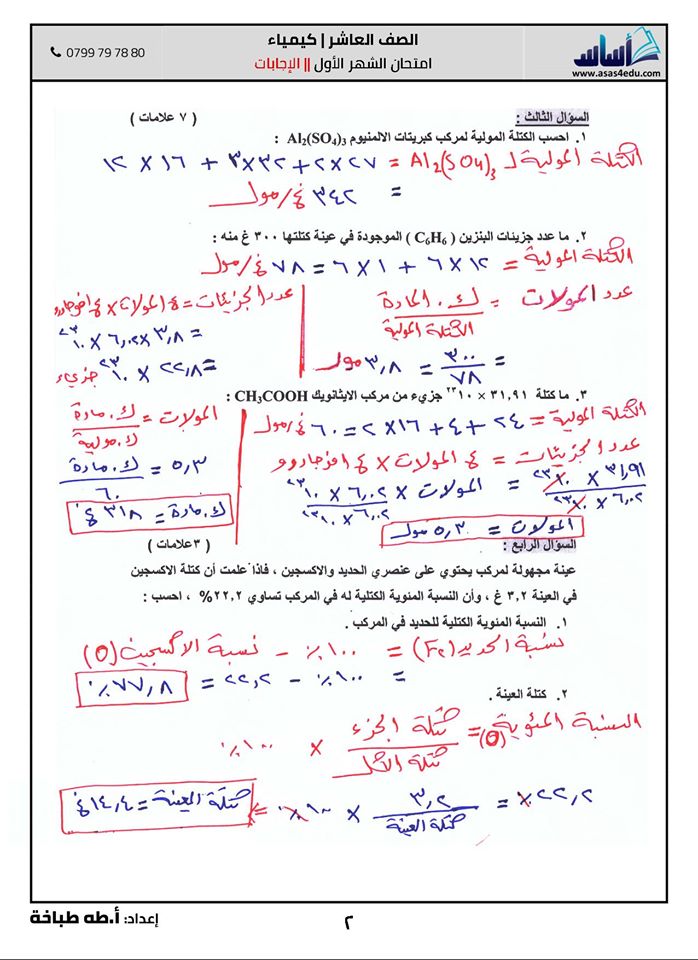 أساس
www.asas4edu.com
الصف العاشر | كيمياء
امتحان الشهر الأول || الإجابات
0799 79 78 80
السؤال الثالث : ( ٧ علامات )
١. احسب الكتلة المولية لمركب كبريتات الالمنيوم Al₂(SO₄)₃ :
الكتلة المولية لـ Al₂(SO₄)₃ = ٢٧×٢ + ٣٢×٣ + ١٦ × ١٢
= ٣٤٢ غ/مول
٢. ما عدد جزيئات البنزين ( C₆H₆ ) الموجودة في عينة كتلتها ٣٠٠ غ منه :
الكتلة المولية = ١٢×٦ + ١×٦ = ٧٨ غ/مول
عدد المولات = ك. المادة / الكتلة المولية
= ٣٠٠ / ٧٨ = ٣,٨ مول
عدد الجزيئات = ع المولات × ع افوجادرو
= ٣,٨ × ٦,٠٢ × ١٠²³
= ٢٢,٨ × ١٠²³ جزيء
٣. ما كتلة ٣١,٩١ × ١٠²³ جزيء من مركب الايثانويك CH₃COOH :
الكتلة المولية = ٢٤ + ٤ + ١٦×٢ = ٦٠ غ/مول
عدد الجزيئات = ع المولات × ع افوجادرو
٣١,٩١ × ١٠²³ / ٦,٠٢ × ١٠²³ = المولات × ٦,٠٢ × ١٠²³ / ٦,٠٢ × ١٠²³
المولات = ٥,٣ مول
المولات = ك. مادة / ك. مولية
٥,٣ = ك. مادة / ٦٠
ك. مادة = ٣١٨ غ
السؤال الرابع : ( ٣ علامات )
عينة مجهولة لمركب يحتوي على عنصري الحديد والاكسجين ، فاذا علمت أن كتلة الاكسجين
في العينة ٣,٢ غ ، وأن النسبة المئوية الكتلية له في المركب تساوي ٢٢,٢% ، احسب :
١. النسبة المئوية الكتلية للحديد في المركب .
نسبة الحديد (Fe) = ١٠٠٪ - نسبة الاكسجين (O)
= ١٠٠٪ - ٢٢,٢ = ٧٧,٨٪
٢. كتلة العينة .
النسبة المئوية (O) = كتلة الجزء / كتلة الكل × ١٠٠٪
٢٢,٢٪ = ٣,٢ / كتلة العينة × ١٠٠٪ = كتلة العينة = ١٤,٤ غ
إعداد: أ.طه طباخة
٢